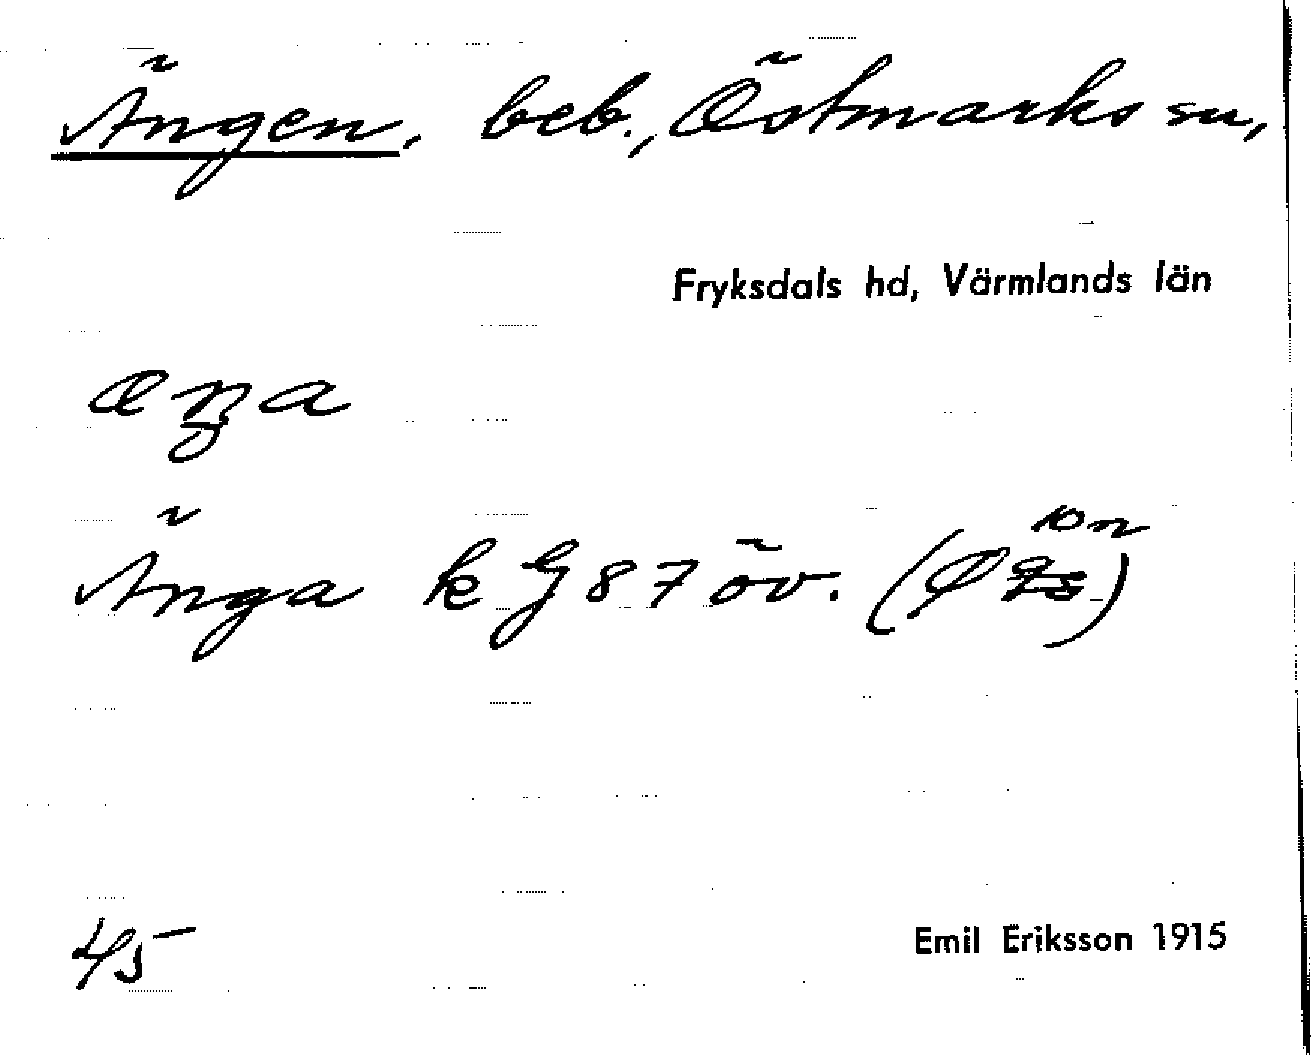 Ängen, beb., Östmarks sn,
Fryksdals hd, Värmlands län
Änga k G 87 öv.
45
Emil Eriksson 1915